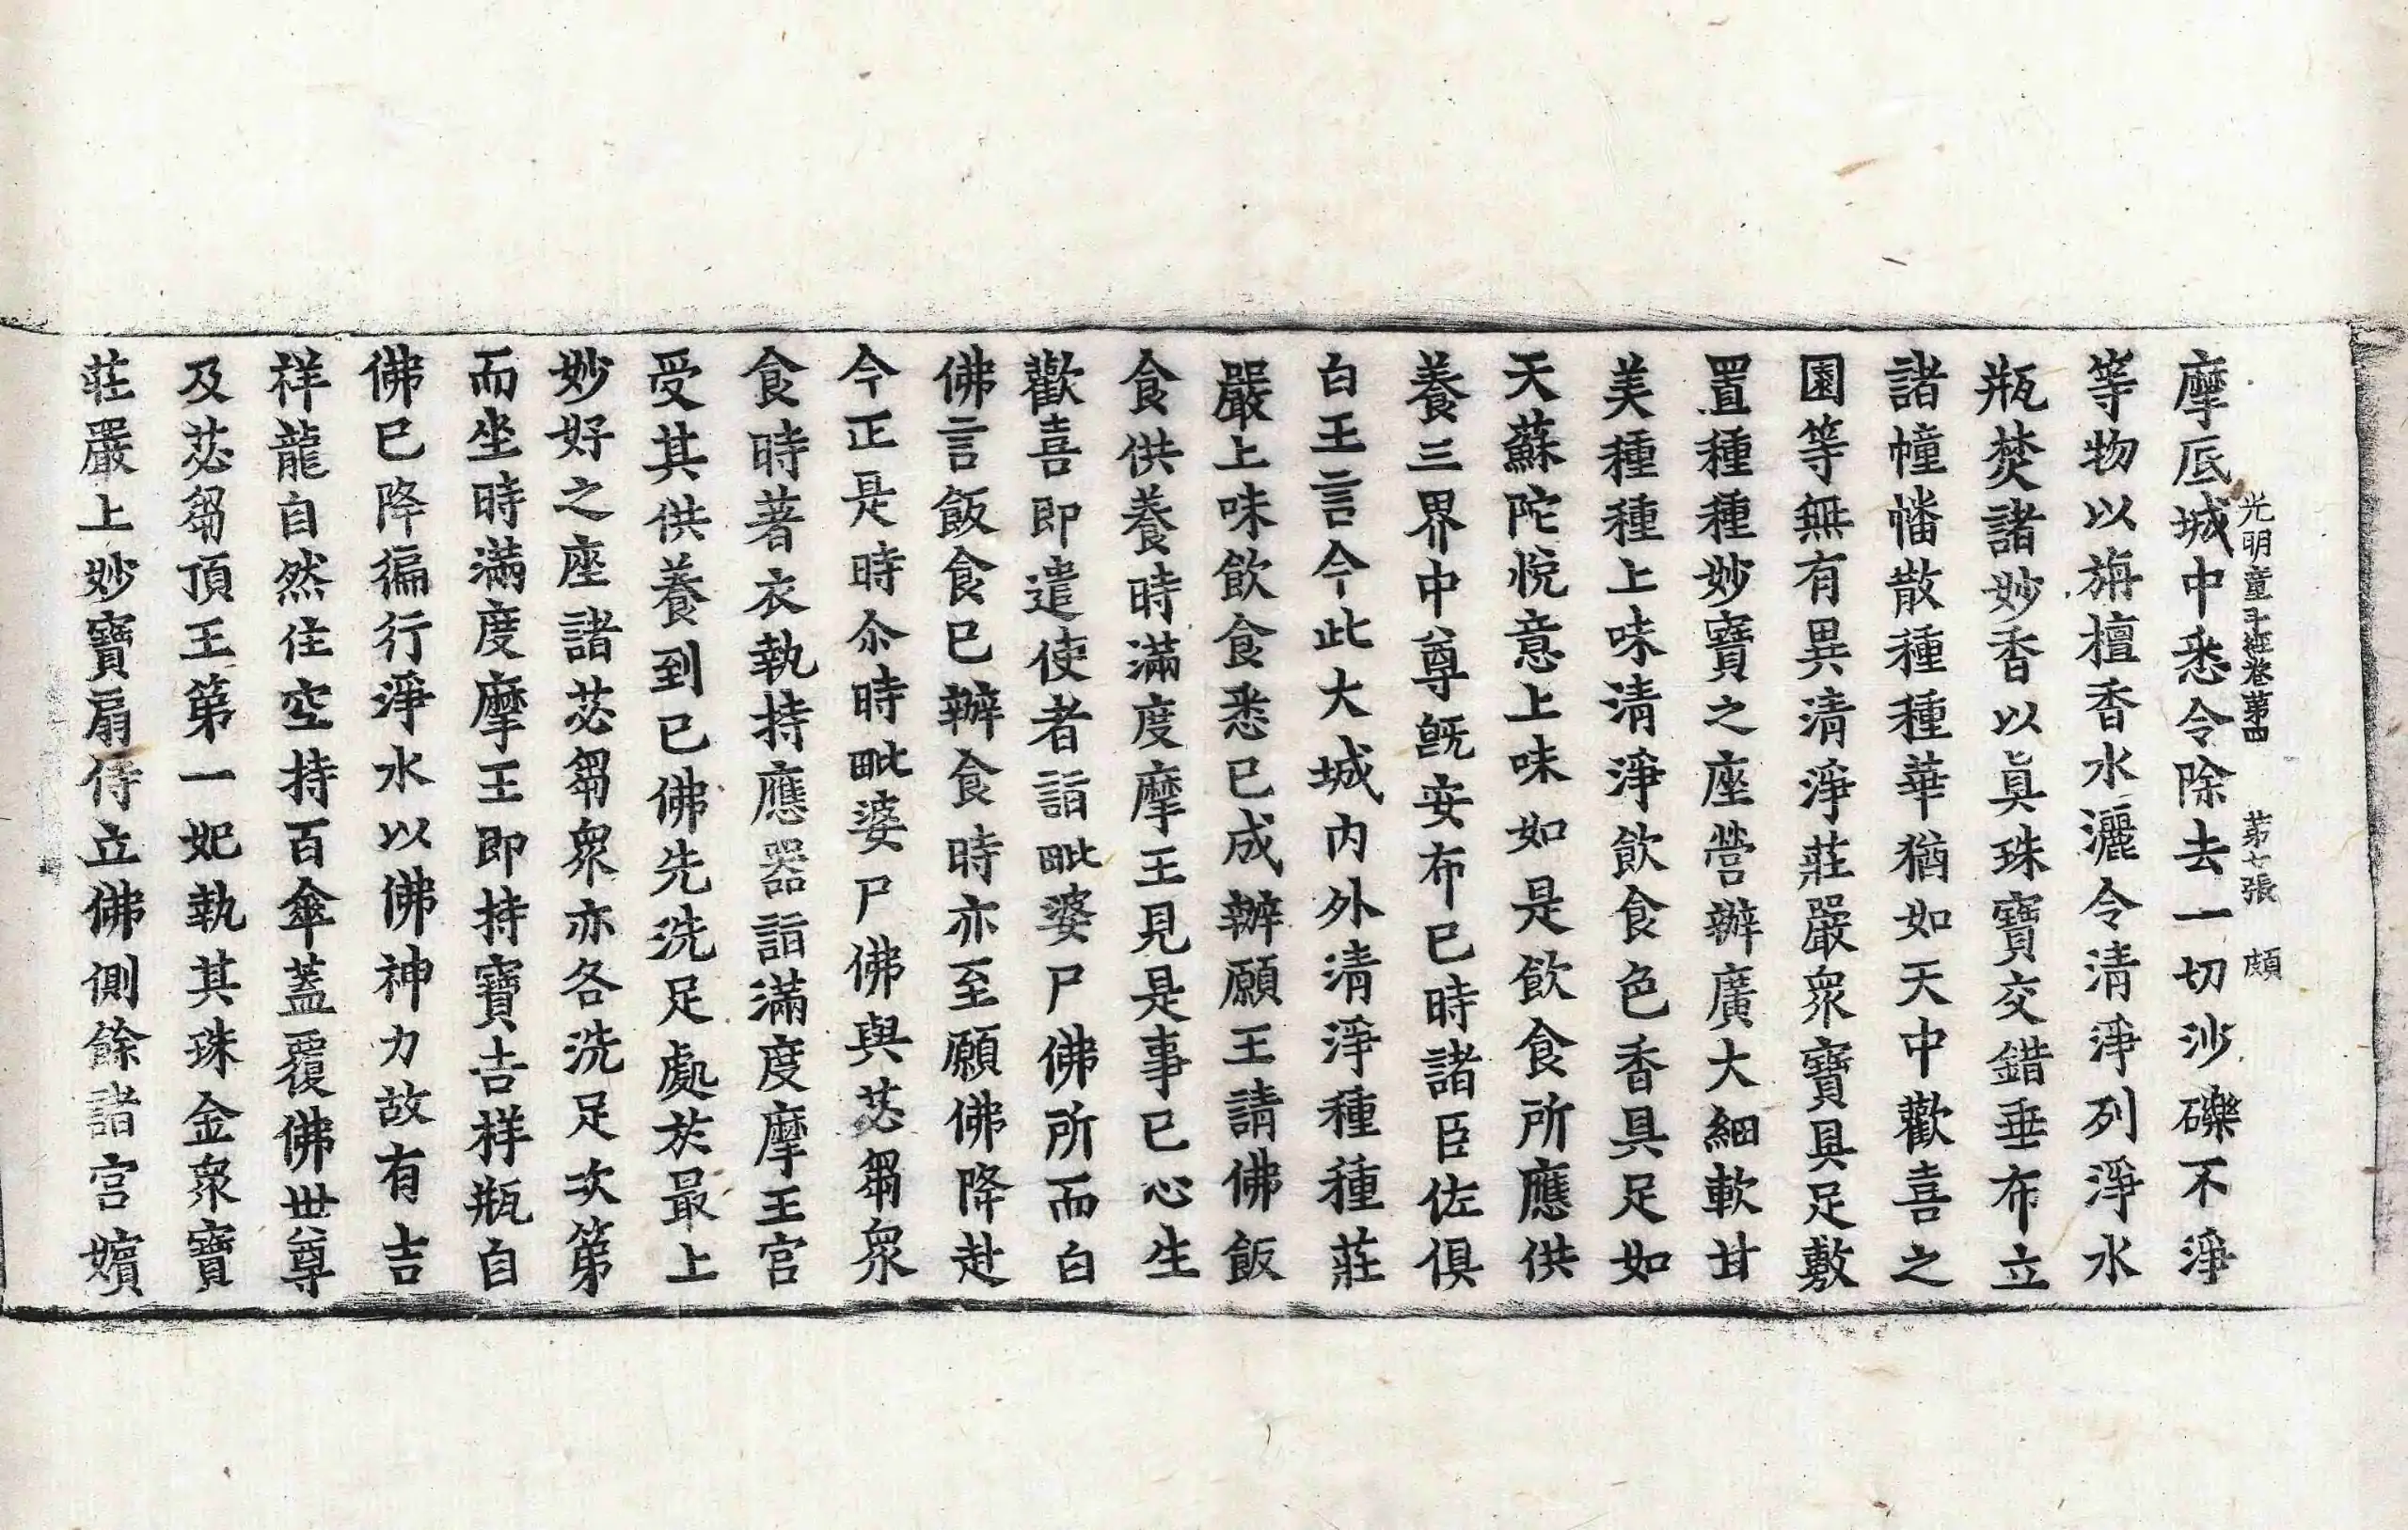 光明童子經卷第四 第七張 頗
摩底城中悉令除去一切沙礫不淨
等物以栴檀香水灑令清淨列淨水
瓶焚諸妙香以眞珠寶交錯垂布立
諸幢幡散種種華猶如天中歡喜之
園等無有異清淨莊嚴衆寶具足敷
置種種妙寶之座營辦廣大細軟甘
美種種上味清淨飲食色香具足如
天蘇陀悅意上味如是飲食所應供
養三界中尊旣安布已時諸臣佐俱
白王言今此大城內外清淨種種莊
嚴上味飲食悉已成辦願王請佛飯
食供養時滿度摩王見是事已心生
歡喜即遣使者詣毗婆尸佛所而白
佛言飯食已辦食時亦至願佛降赴
今正是時尒時毗婆尸佛與苾芻衆
食時著衣執持應器詣滿度摩王宮
受其供養到已佛先洗足處於最上
妙好之座諸苾芻衆亦各洗足次第
而坐時滿度摩王即持寶吉祥瓶自
佛已降徧行淨水以佛神力故有吉
祥龍自然住空持百傘蓋覆佛世尊
及苾芻頂王第一妃執其珠金衆寶
莊嚴上妙寶扇侍立佛側餘諸宮嬪